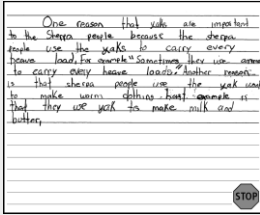 One reason that yaks are important
to the Sherpa people because the sherpa
people use the yaks to carry every
heave load. For example "Sometimes they use
to carry every heave loads." Another reason
is that sherpa people use the yak
to make worm clothing example is
that they use yak to make milk and
butter,
STOP